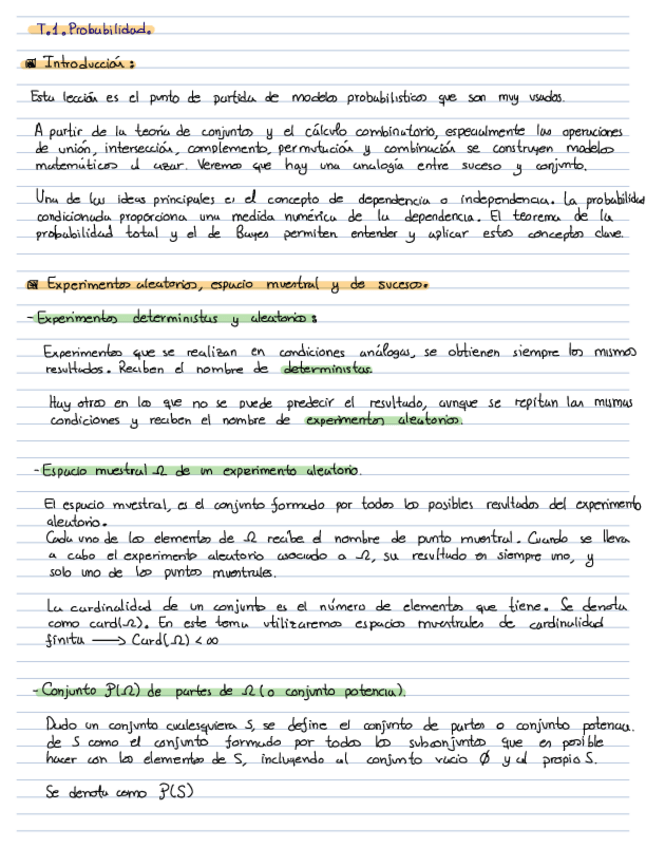 T.1. Probabilidad.
Introducción:
Esta lección es el punto de partida de modelos probabilísticos que son muy usados.
A partir de la teoría de conjuntos y el cálculo combinatorio, especialmente las operaciones
de unión, intersección, complemento, permutación y combinación se construyen modelos
matemáticos al azar. Veremos que hay una analogía entre suceso y conjunto.
Una de las ideas principales es el concepto de dependencia o independencia. La probabilidad
condicionada proporciona una medida numérica de la dependencia. El teorema de la
probabilidad total y el de Bayes permiten entender y aplicar estos conceptos clave.
Experimentos aleatorios, espacio muestral y de sucesos.
- Experimentos deterministas y aleatorios:
Experimentos que se realizan en condiciones análogas, se obtienen siempre los mismos
resultados. Reciben el nombre de deterministas.
Hay otros en los que no se puede predecir el resultado, aunque se repitan las mismas
condiciones y reciben el nombre de experimentos aleatorios.
- Espacio muestral Ω de un experimento aleatorio.
El espacio muestral, es el conjunto formado por todos los posibles resultados del experimento
aleatorio.
Cada uno de los elementos de Ω recibe el nombre de punto muestral. Cuando se lleva
a cabo el experimento aleatorio asociado a Ω, su resultado es siempre uno, y
solo uno de los puntos muestrales.
La cardinalidad de un conjunto es el número de elementos que tiene. Se denota
como card(Ω). En este tema utilizaremos espacios muestrales de cardinalidad
finita ⟶ Card(Ω) < ∞
- Conjunto P(Ω) de partes de Ω (o conjunto potencia).
Dado un conjunto cualesquiera S, se define el conjunto de partes o conjunto potencia.
de S como el conjunto formado por todos los subconjuntos que es posible
hacer con los elementos de S, incluyendo al conjunto vacio Ø y al propio S.
Se denota como P(S)